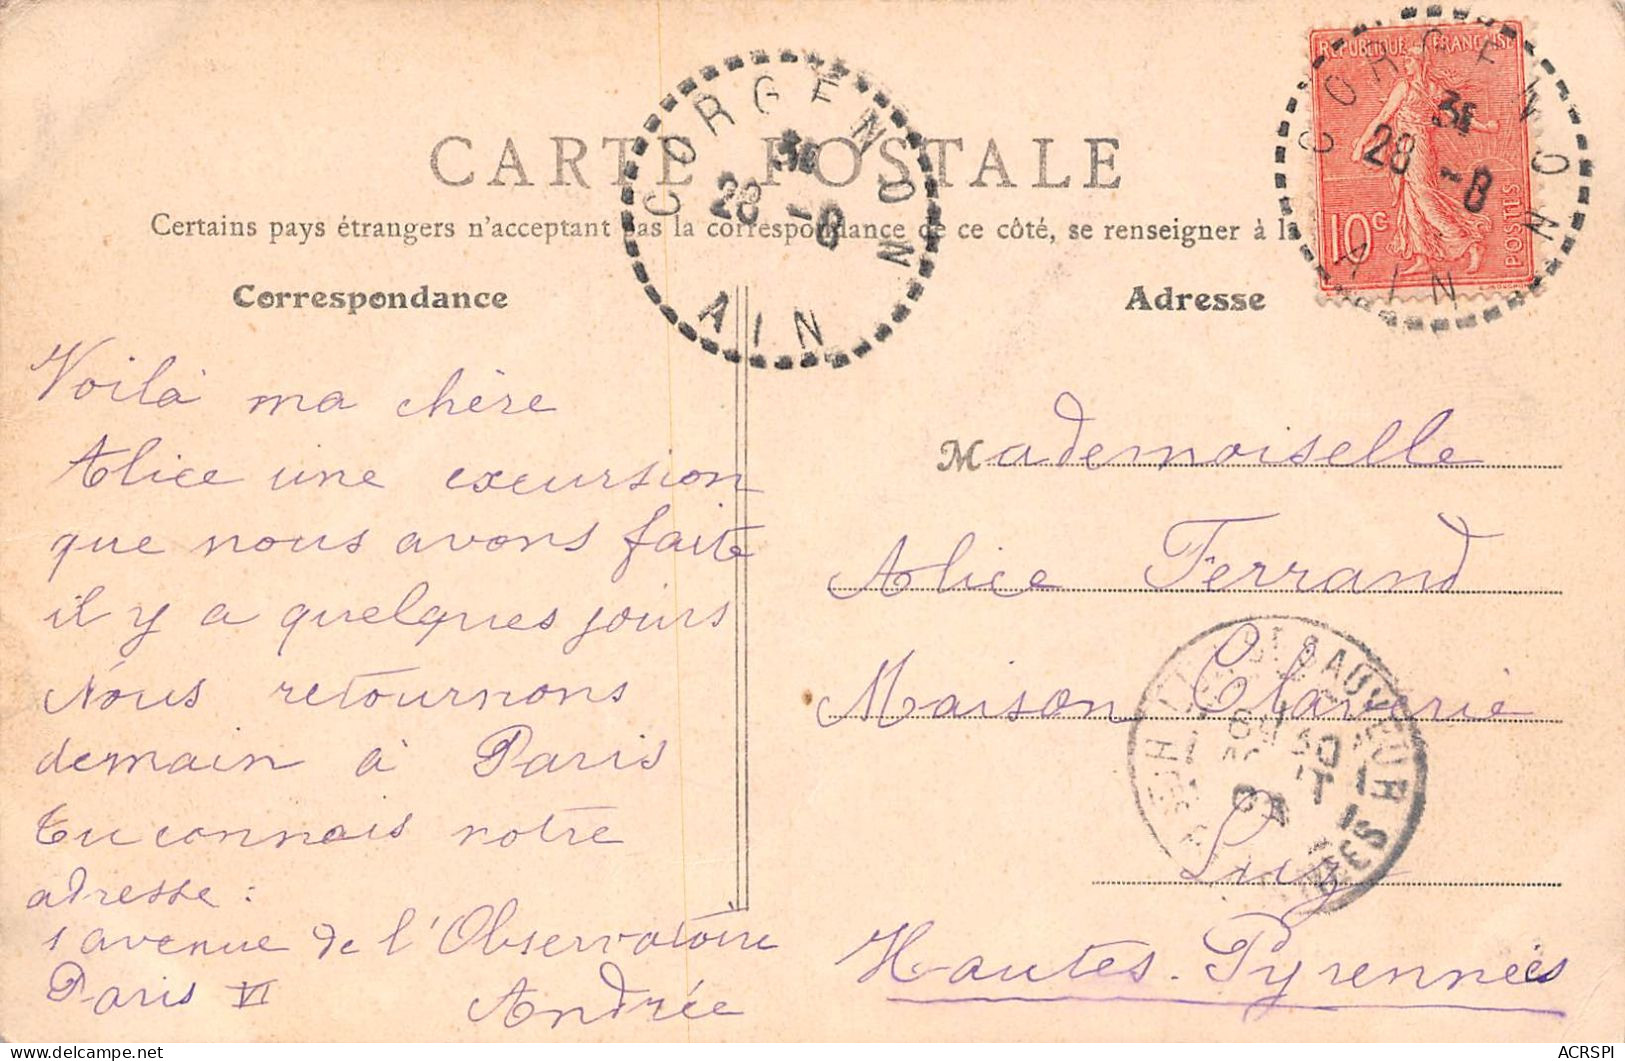 CARTE POSTALE
Certains pays étrangers n'acceptant pas la correspondance de ce côté, se renseigner à la
Correspondance
Adresse
REPUBLIQUE FRANÇAISE
10c
POSTES
CORGENON
28 -8
AIN
CORGENON
28 -8
AIN
Voilà ma chère
Alice une excursion
que nous avons faite
il y a quelques jours
Nous retournons
demain à Paris
Tu connais notre
adresse :
1 avenue de l'Observatoire
Paris VI
Andrée
Mademoiselle
Alice Ferrand
Maison Claverie
Luz
Hautes-Pyrennées
SAUVEUR
ACRSPI